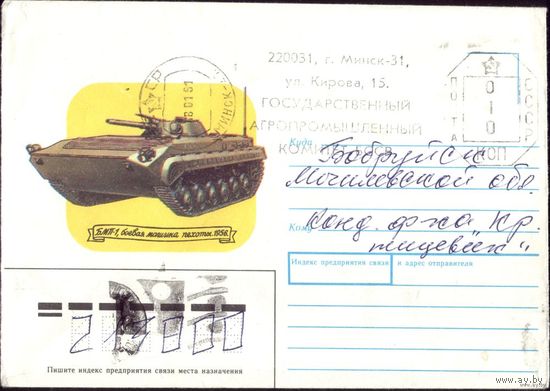 220031, г. Минск-31,
ул. Кирова, 15.
ГОСУДАРСТВЕННЫЙ
АГРОПРОМЫШЛЕННЫЙ
КОМИТЕТ БССР
ПОЧТА
СССР
010
КОП
МИНСК
Куда
Бобруйск
Могилевской обл.
Кому
Конд. ф-ка Кр.
пищевик"
БМП-1, боевая машина пехоты. 1956.
Индекс предприятия связи и адрес отправителя
Пишите индекс предприятия связи места назначения
www.ay.by